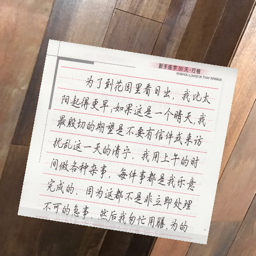 为了到花园里看日出，我比太
阳起得更早；如果这是一个晴天，我
最殷切的期望是不要有信件或来访
扰乱这一天的清宁。我用上午的时
间做各种杂事，每件事都是我乐意
完成的，因为这都不是非立即处理
不可的急事，然后我匆忙用膳，为的